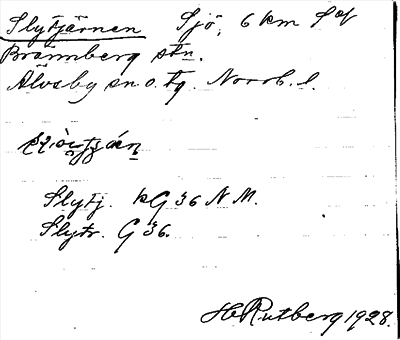 Slytjärnen Sjö, 6 km S of
Brännberg stn.
Älvsby sn o. tg. Norrb. l.
Slytj. kG 36 N M.
Slytr. G 36.
H Rutberg 1928.